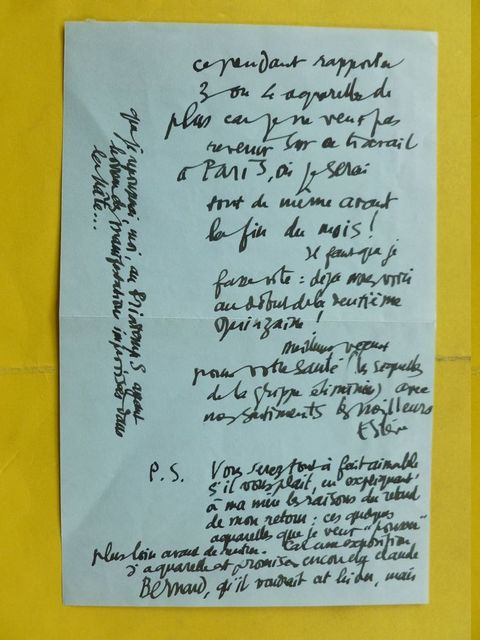 cependant rapporter
3 ou 4 aquarelles de
plus car je ne veux pas
revenir sur ce travail
à PARIS, où je serai
tout de même avant
la fin du mois!
Il faut que je
fasse vite : déjà nous voici
au début de la deuxième
quinzaine!
Meilleurs vœux
pour votre santé (les séquelles
de la grippe éliminées) avec
nos sentiments les meilleurs
Estève
P.S. Vous serez tout à fait aimable
s'il vous plaît, en expliquant
à ma mère les raisons du retard
de mon retour : ces quelques
aquarelles que je veux "pousser"
plus loin avant de rentrer. Car une exposition
d'aquarelles est promise encore à Claude
Bernard, qu'il voudrait cet hiver, mais
que je repousse moi, au printemps ayant
horreur des manifestations improvisées dans
la hâte...